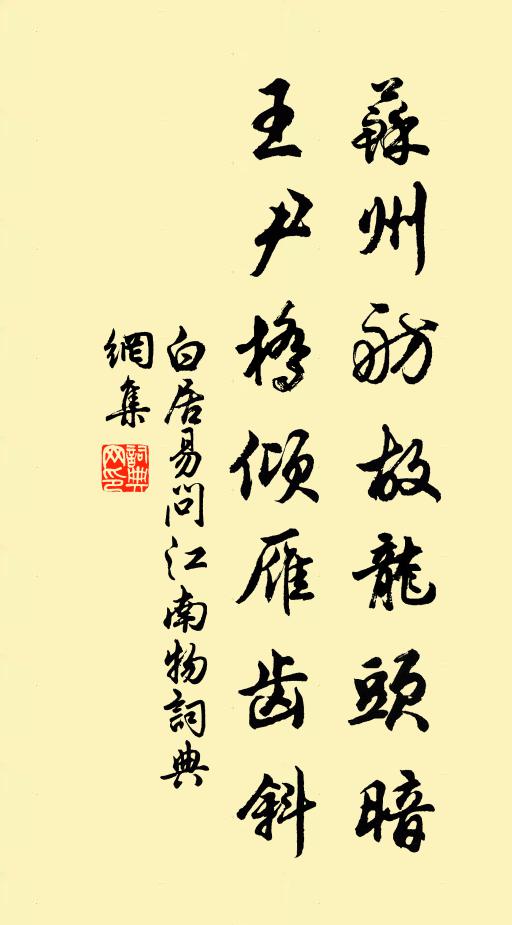 蘇州舫故龍頭暗
王尹橋傾雁齿斜
白居易問江南物詞典
網集
詞典
网印